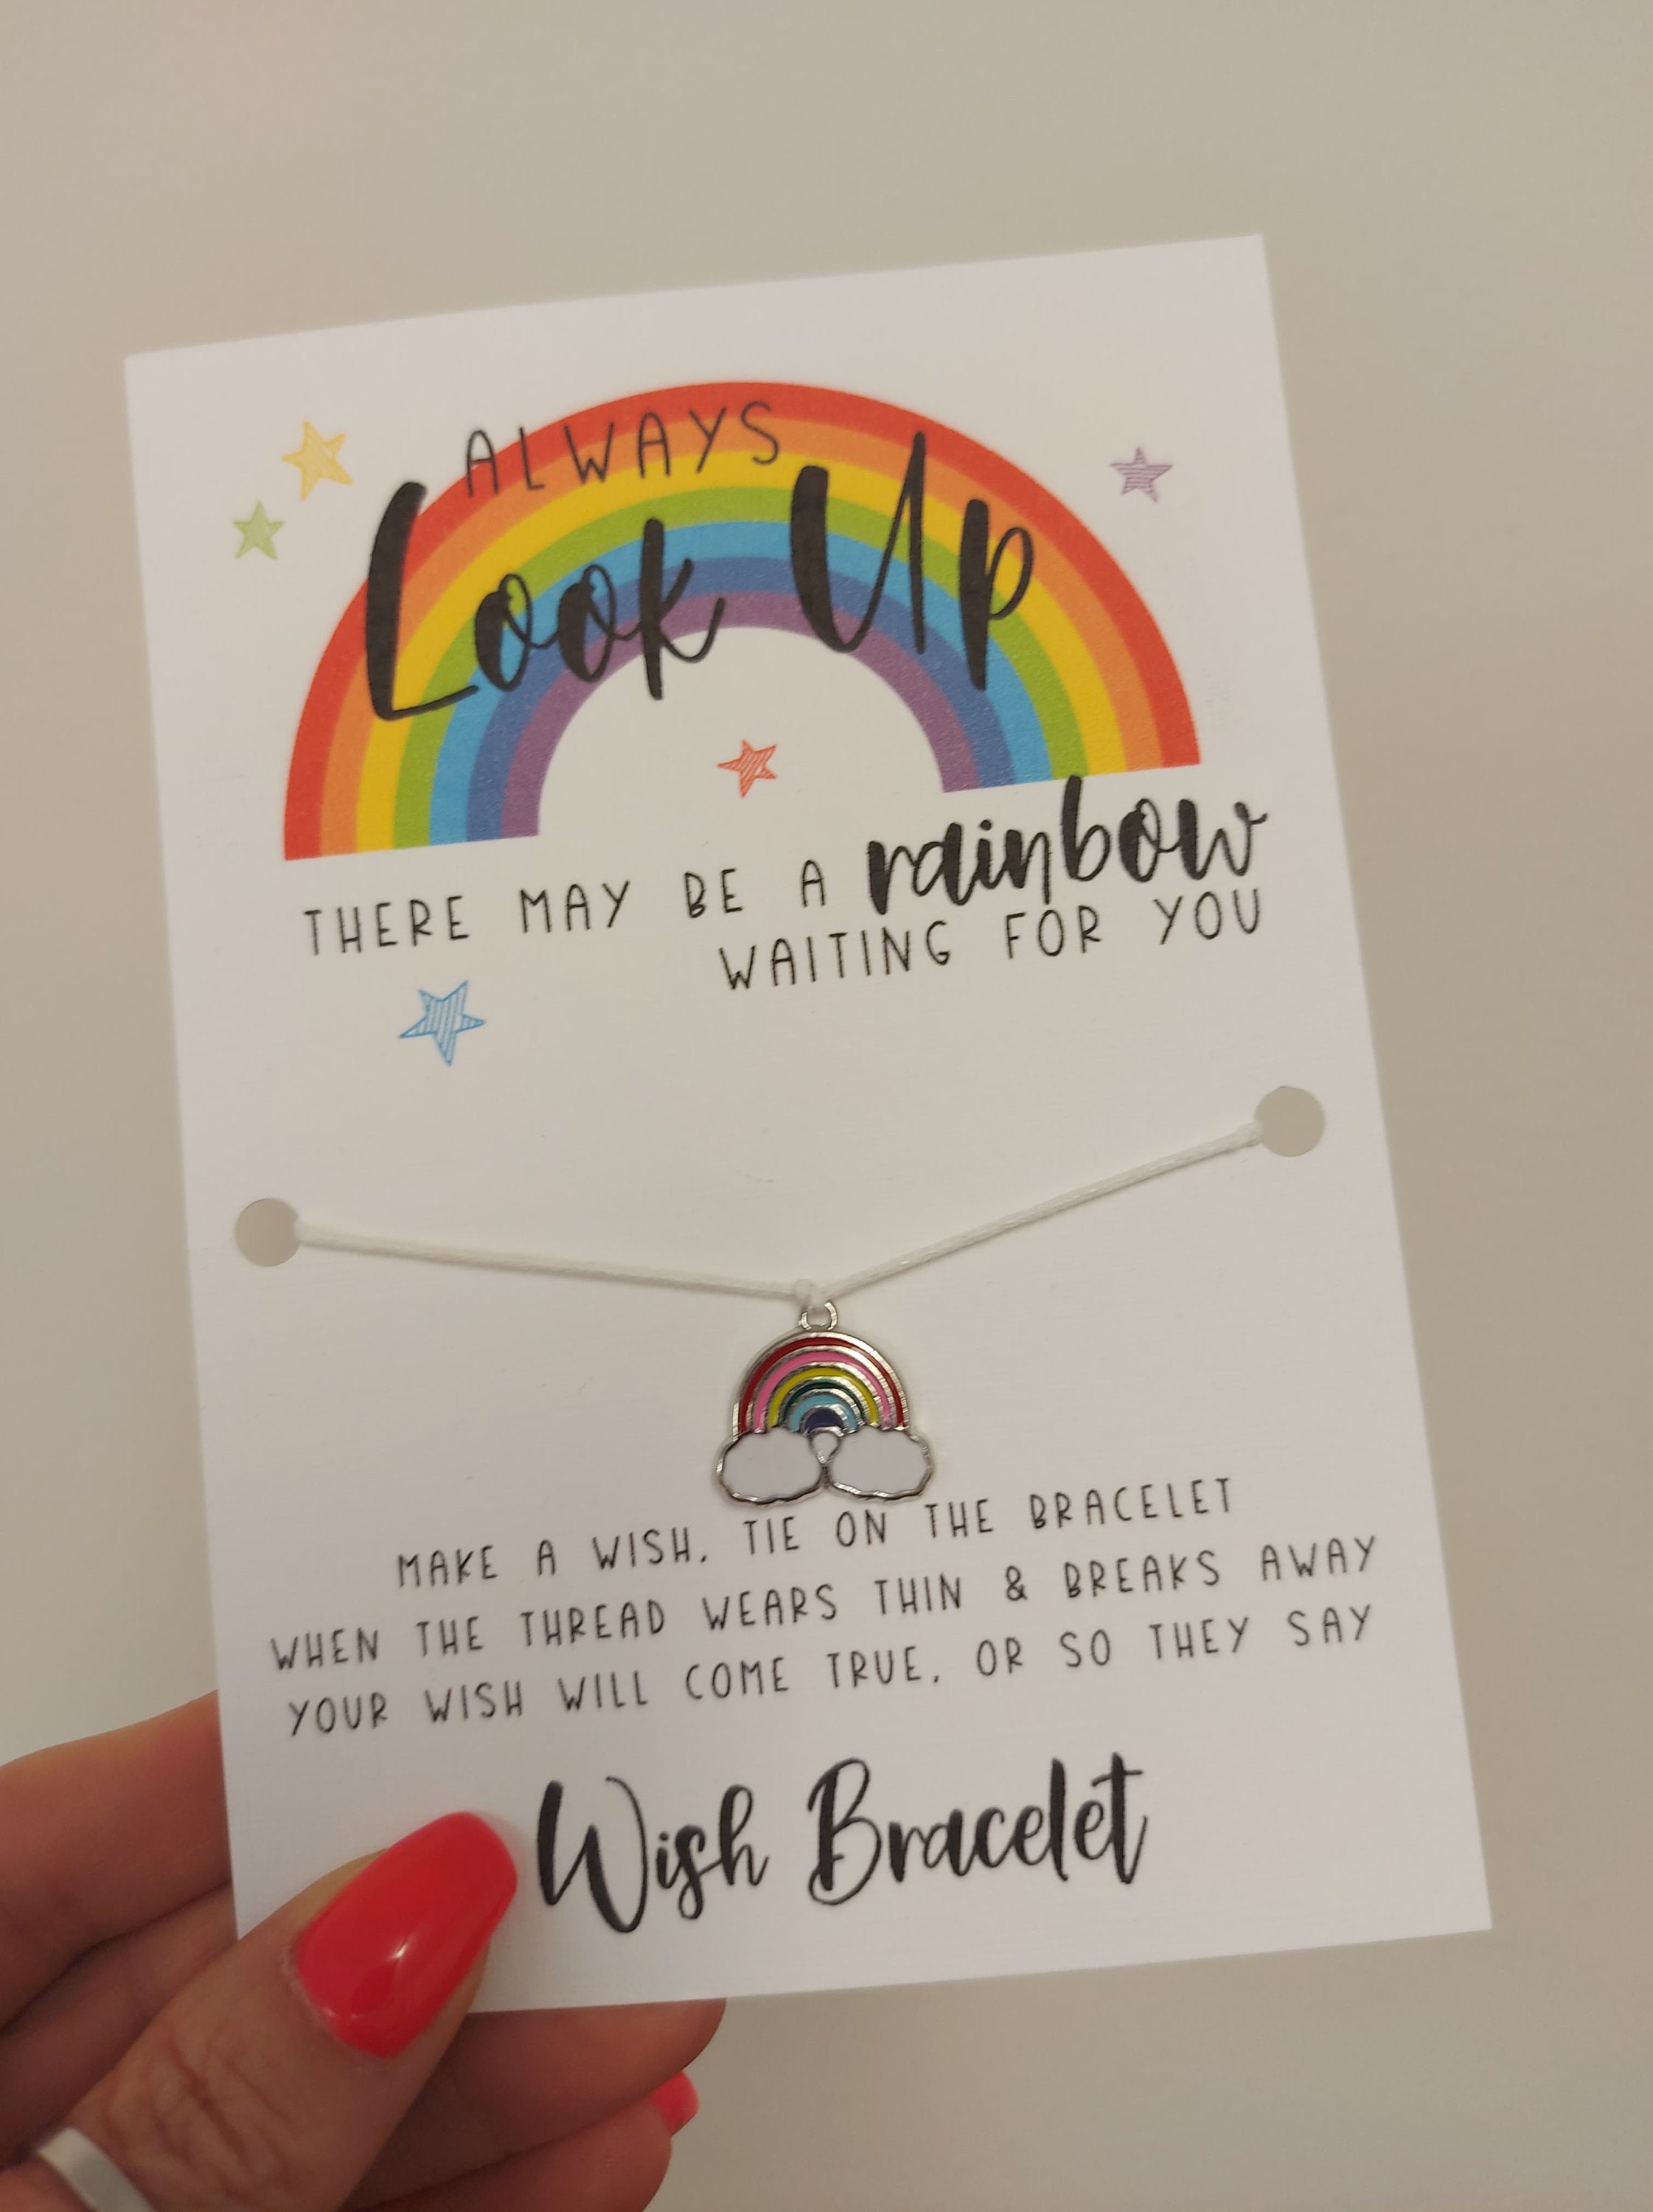 ALWAYS
Look Up
THERE MAY BE A rainbow
WAITING FOR YOU
MAKE A WISH. TIE ON THE BRACELET
WHEN THE THREAD WEARS THIN & BREAKS AWAY
YOUR WISH WILL COME TRUE. OR SO THEY SAY
Wish Bracelet